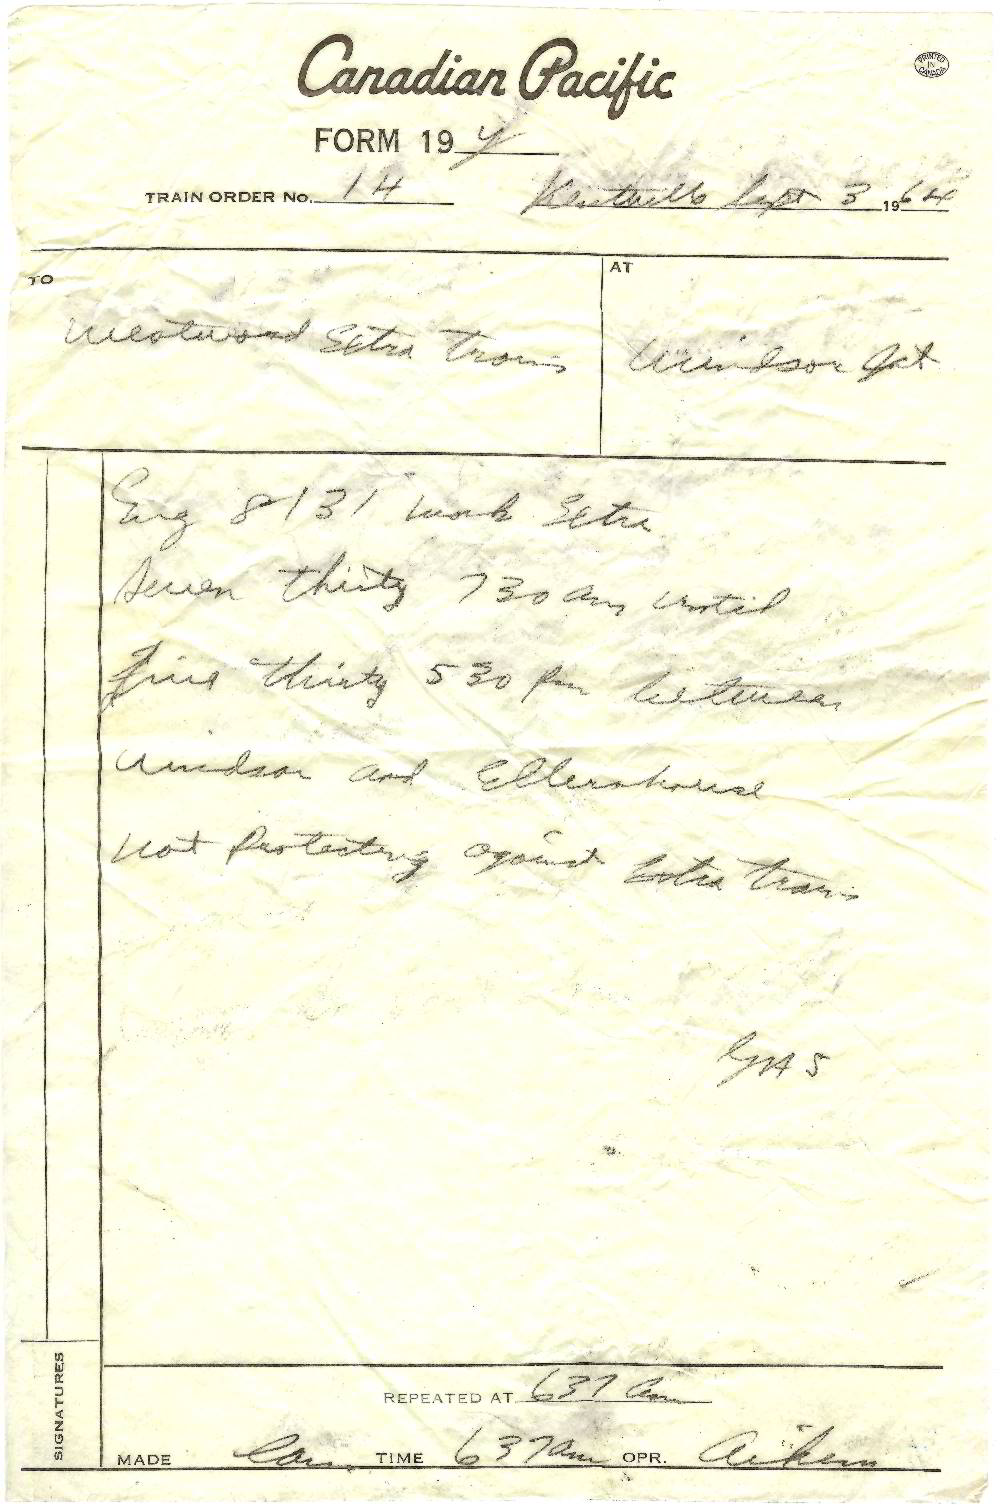 Canadian Pacific
PRINTED IN CANADA
FORM 19 Y
TRAIN ORDER No. 14 Kentville Sept 3 1964
TO
AT
Westward Extra Trains
Windsor Jct
Eng 8131 work Extra
seven thirty 730 am until
five thirty 530 pm between
Windsor and Ellershouse
not Protecting against Extra trains
REPEATED AT 637 am
SIGNATURES
MADE Com TIME 637 am OPR. Aikens